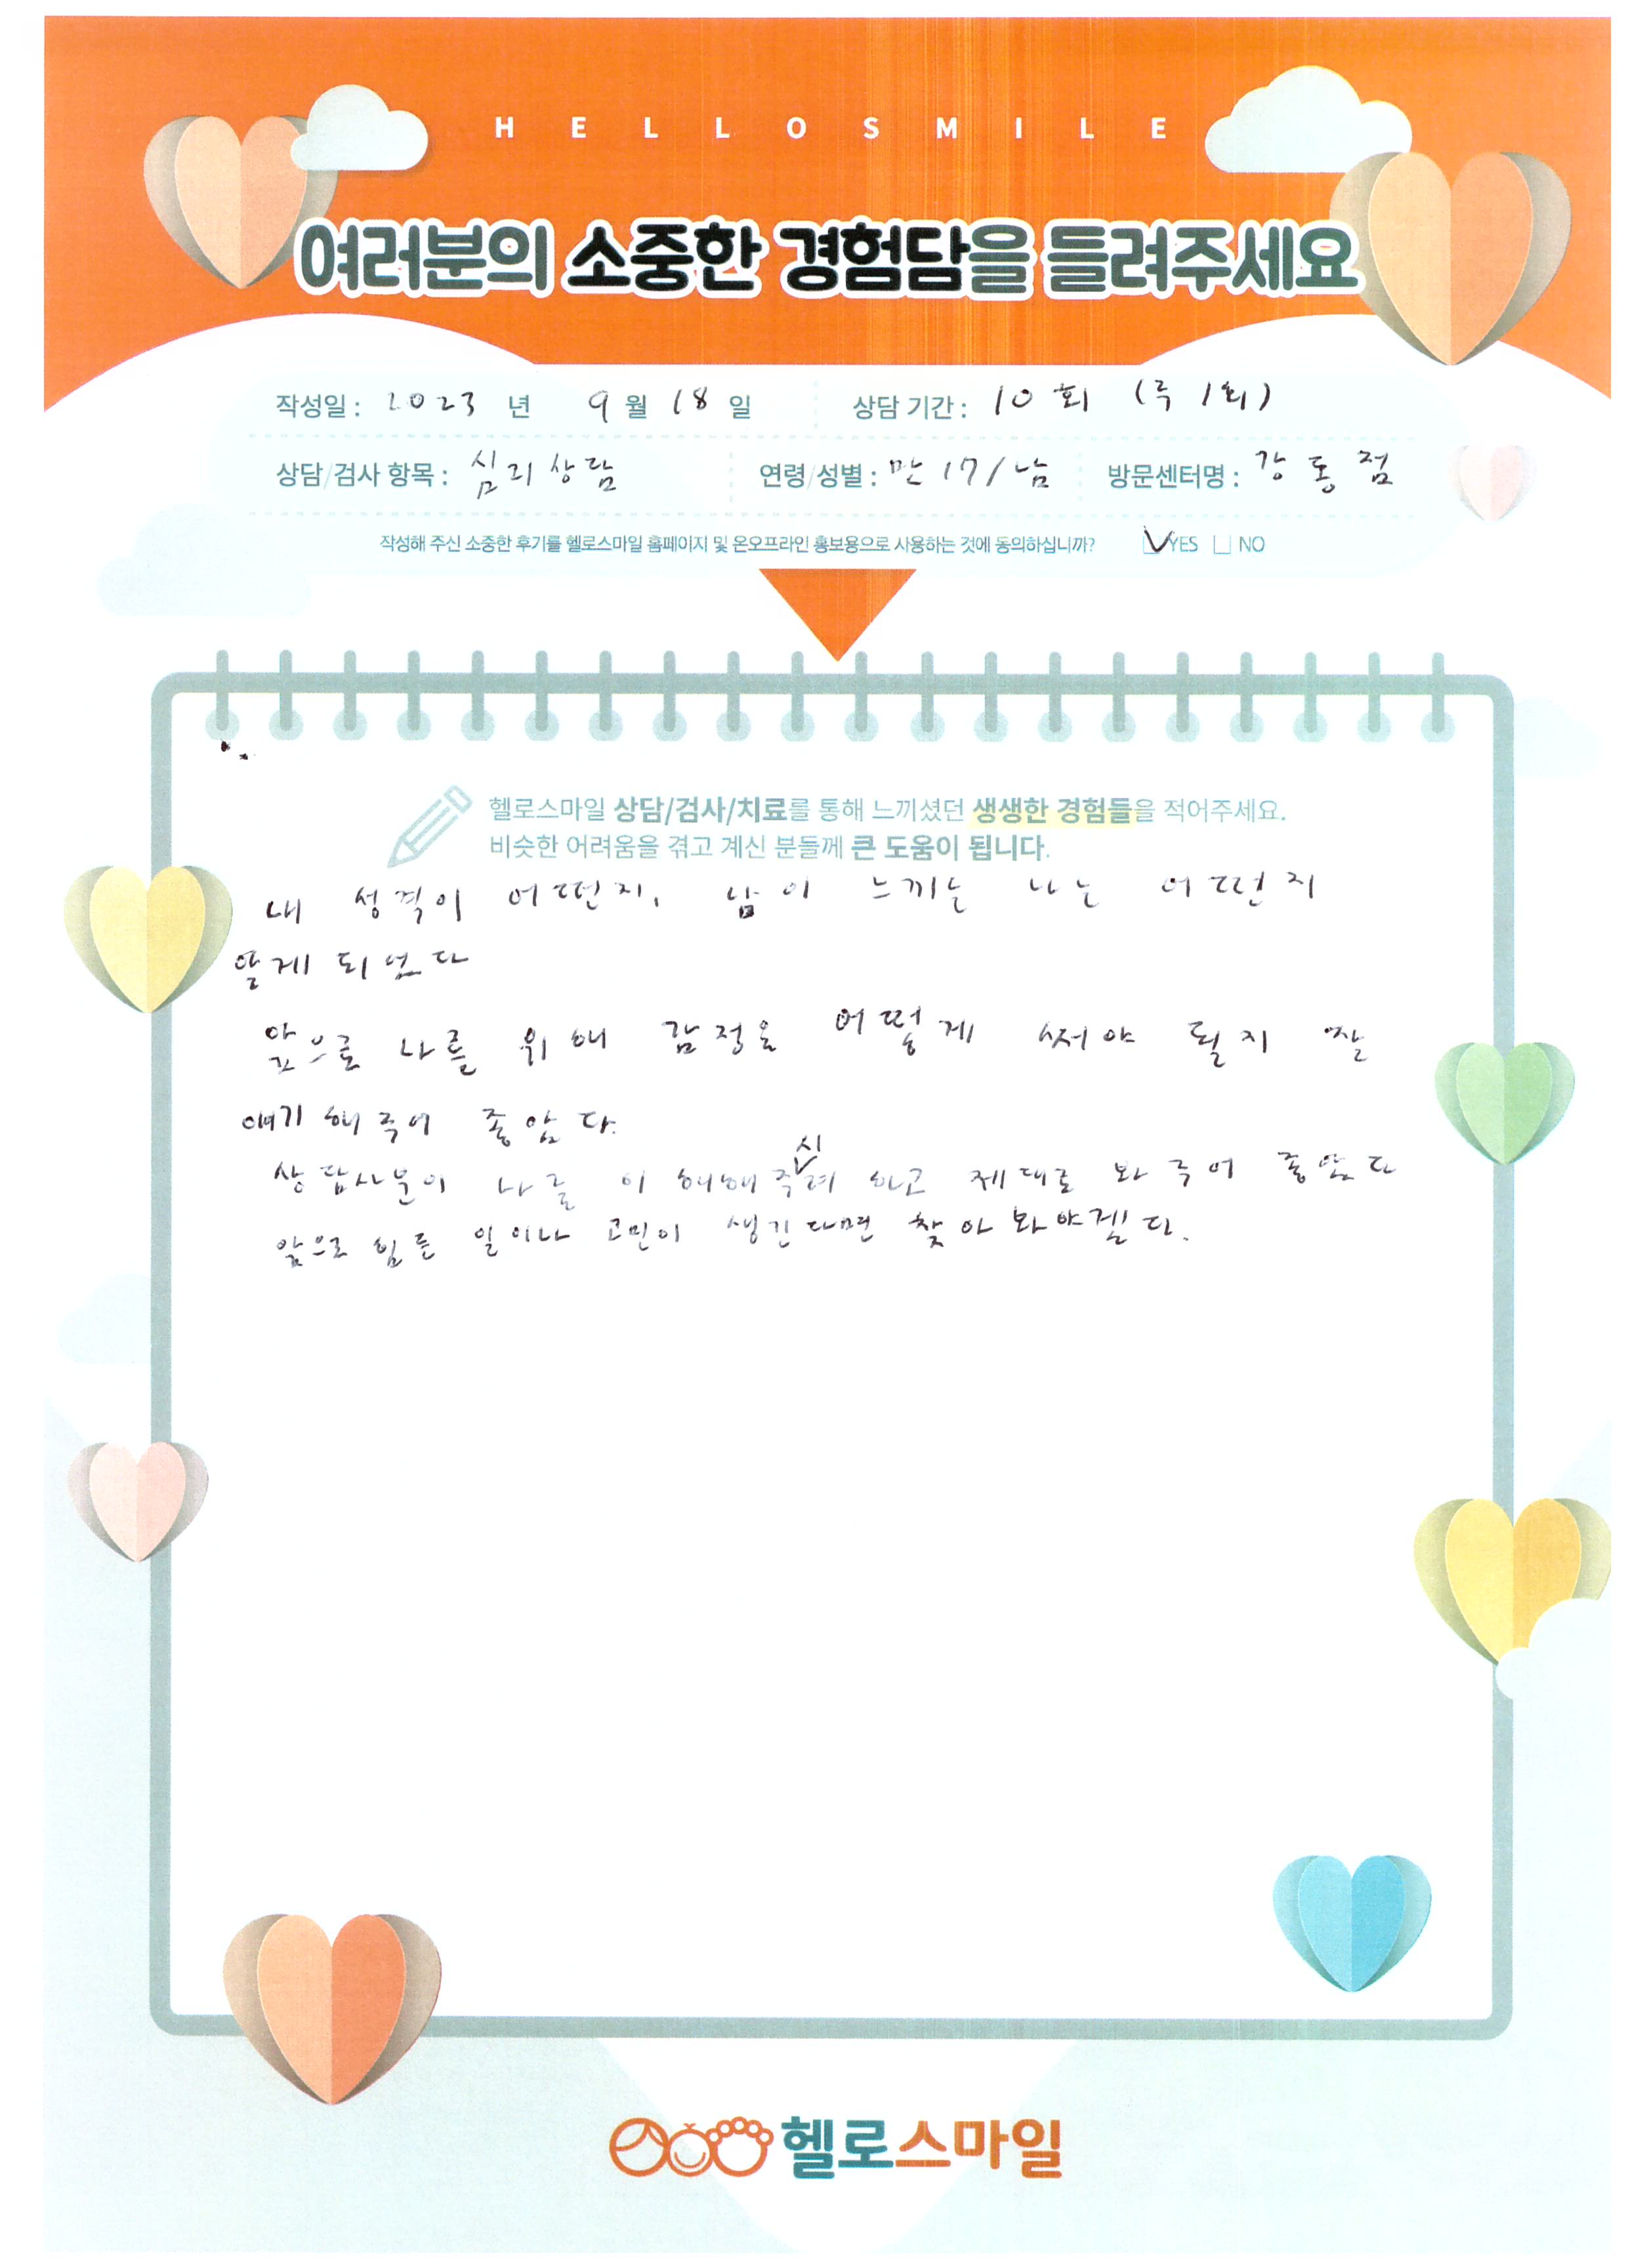 HELLOSMILE
여러분의 소중한 경험담을 들려주세요
작성일 : 2023 년 9 월 18 일 상담 기간 : 10회 (주 1회)
상담/검사 항목 : 심리상담 연령/성별 : 만 17/남 방문센터명 : 강동점
작성해 주신 소중한 후기를 헬로스마일 홈페이지 및 온오프라인 홍보용으로 사용하는 것에 동의하십니까? YES NO
헬로스마일 상담/검사/치료를 통해 느끼셨던 생생한 경험들을 적어주세요.
비슷한 어려움을 겪고 계신 분들께 큰 도움이 됩니다.
내 성격이 어떤지, 남이 느끼는 나는 어떤지
알게 되었다
앞으로 나를 위해 감정을 어떻게 써야 될지 잘
얘기 해주어 좋았다.
상담사분이 나를 이해해주시려 하고 제대로 봐주어 좋았다
앞으로 힘든 일이나 고민이 생긴다면 찾아봐야겠다.
헬로스마일